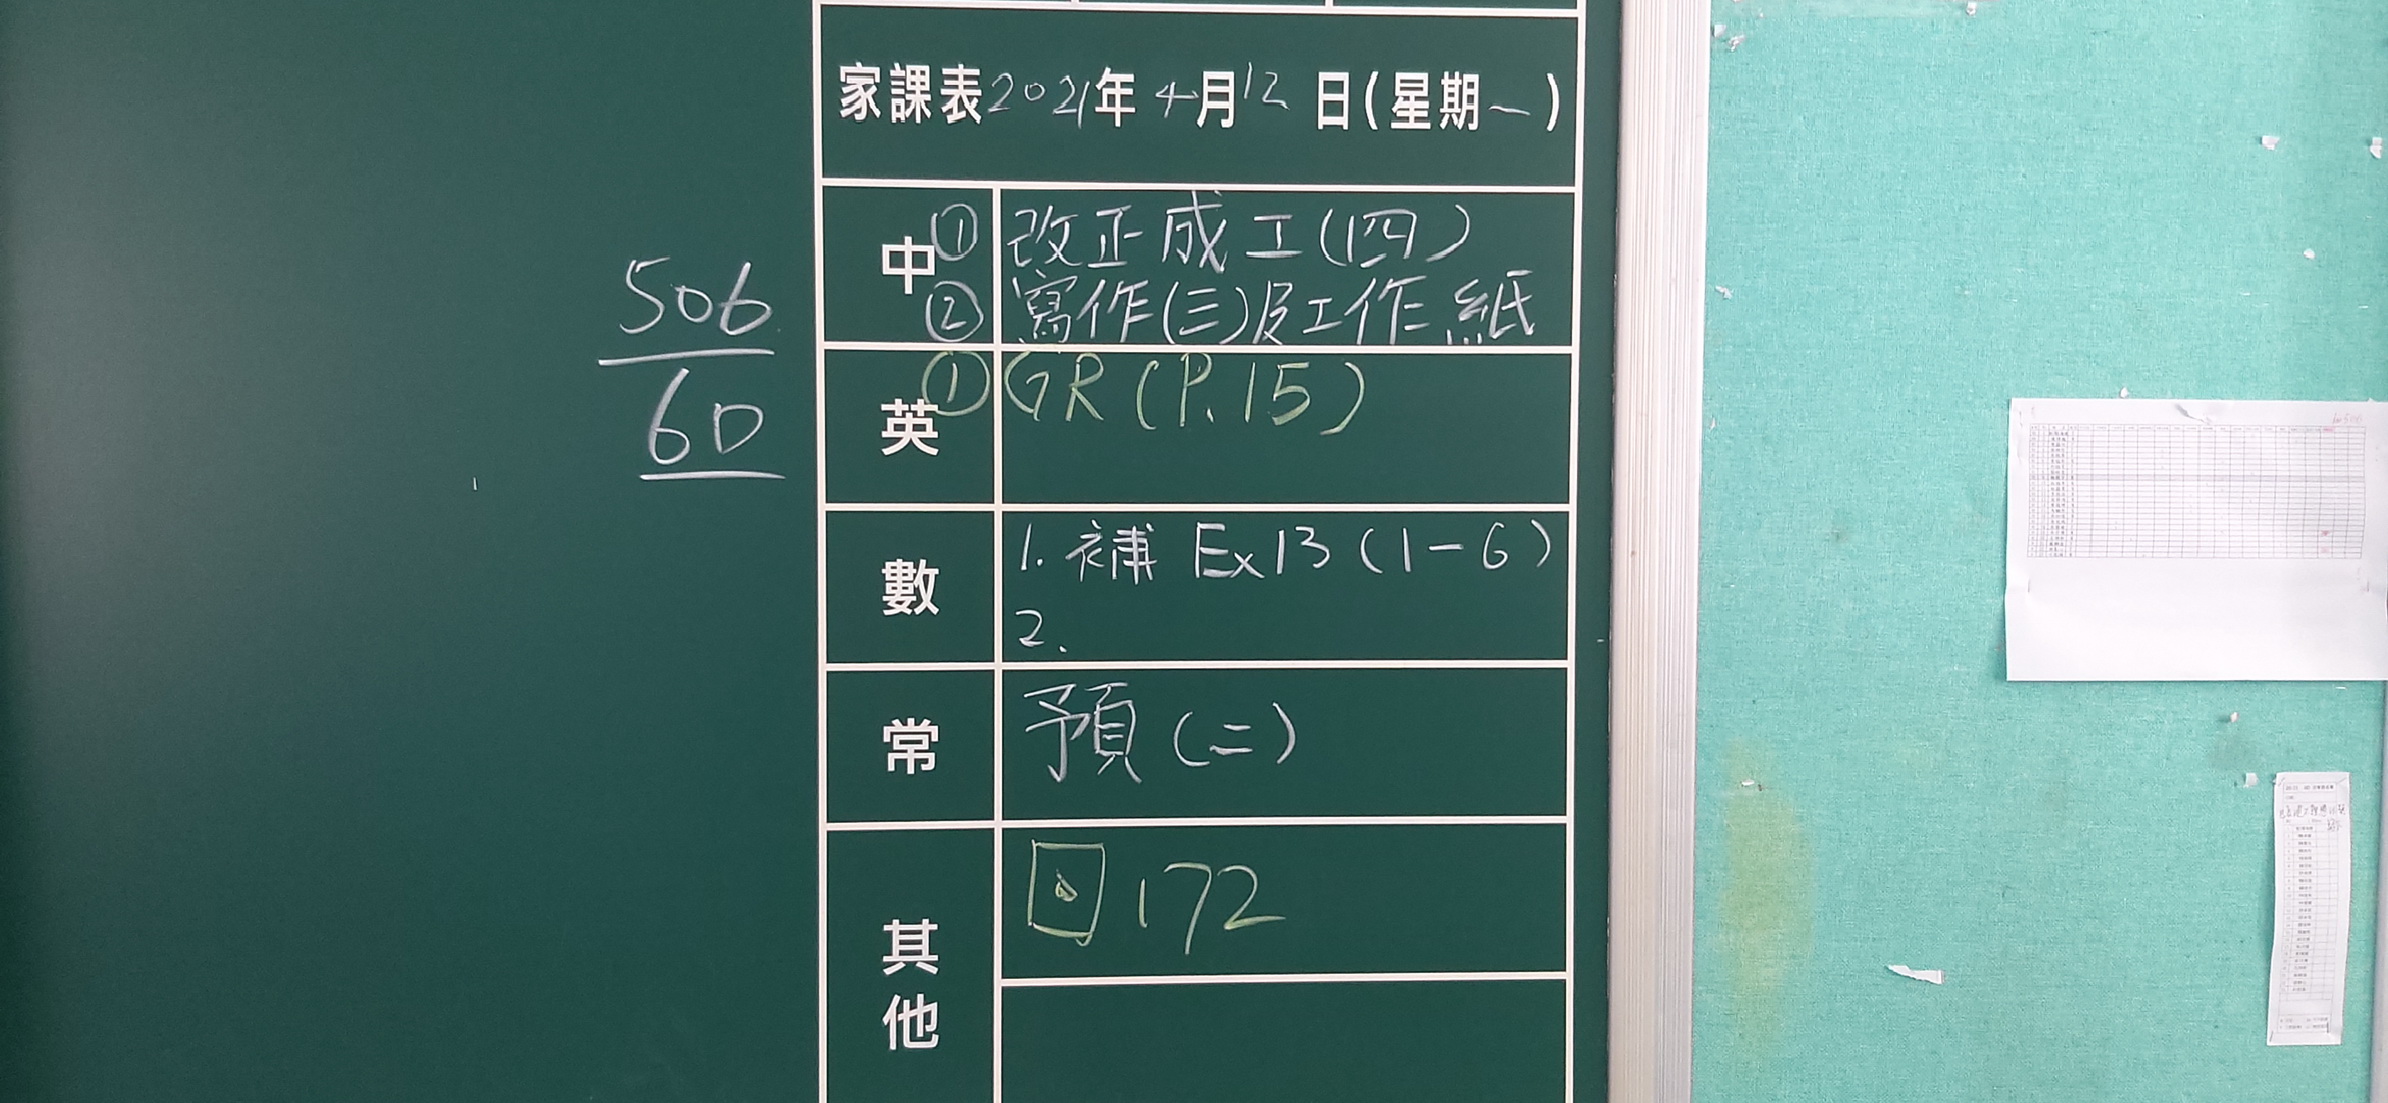 家課表2021年4月12日(星期一)
中
① 改正成工(四)
② 寫作(三)及工作紙
506
60
英
① GR(P.15)
數
1. 補 Ex13(1-6)
2.
常
預(二)
其他
172